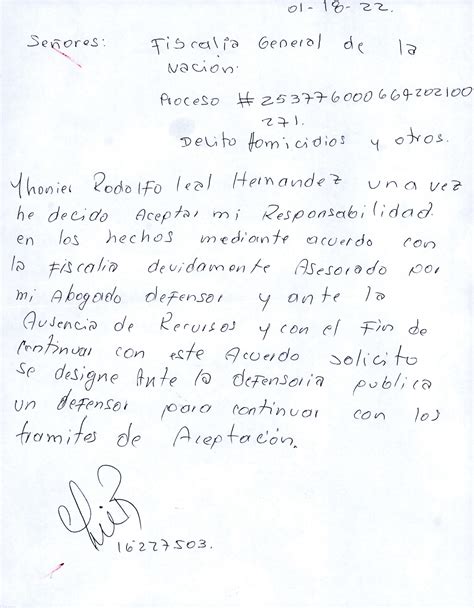 01-18-22.
Señores: Fiscalía General de la
Nación.
Proceso # 253776000664202100
271.
Delito Homicidios y otros.
Yhonier Rodolfo leal Hernandez una vez
he decido Aceptar mi Responsabilidad
en los hechos mediante acuerdo con
la Fiscalia devidamente Asesorado por
mi Abogado defensor y ante la
Ausencia de Recursos y con el Fin de
continuar con este Acuerdo solicito
se designe Ante la defensoria publica
un defensor para continuar con los
tramites de Aceptación.
16227503.